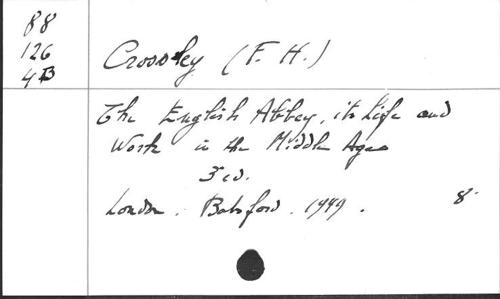 88
126
4B
Crossley (F. H.)
The English Abbey, its Life and
Work in the Middle Ages
3 ed.
London. Batsford. 1949. 8°